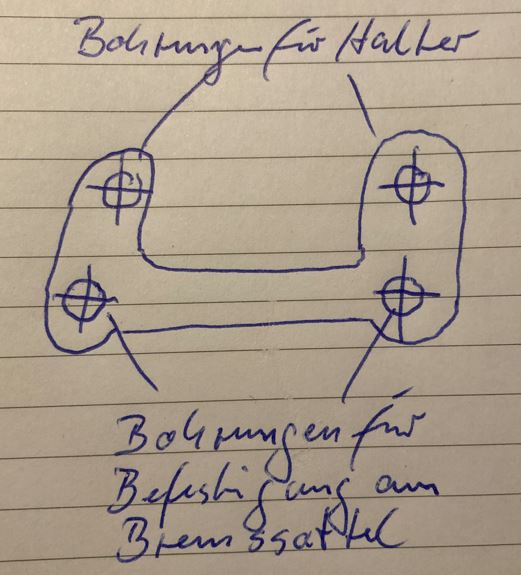 Bohrungen für Halter
Bohrungen für
Befestigung am
Bremssattel